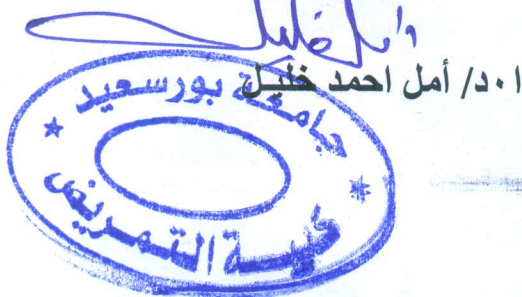 ا٠د/ أمل احمد خليل
جامعة بورسعيد
كلية التمريض